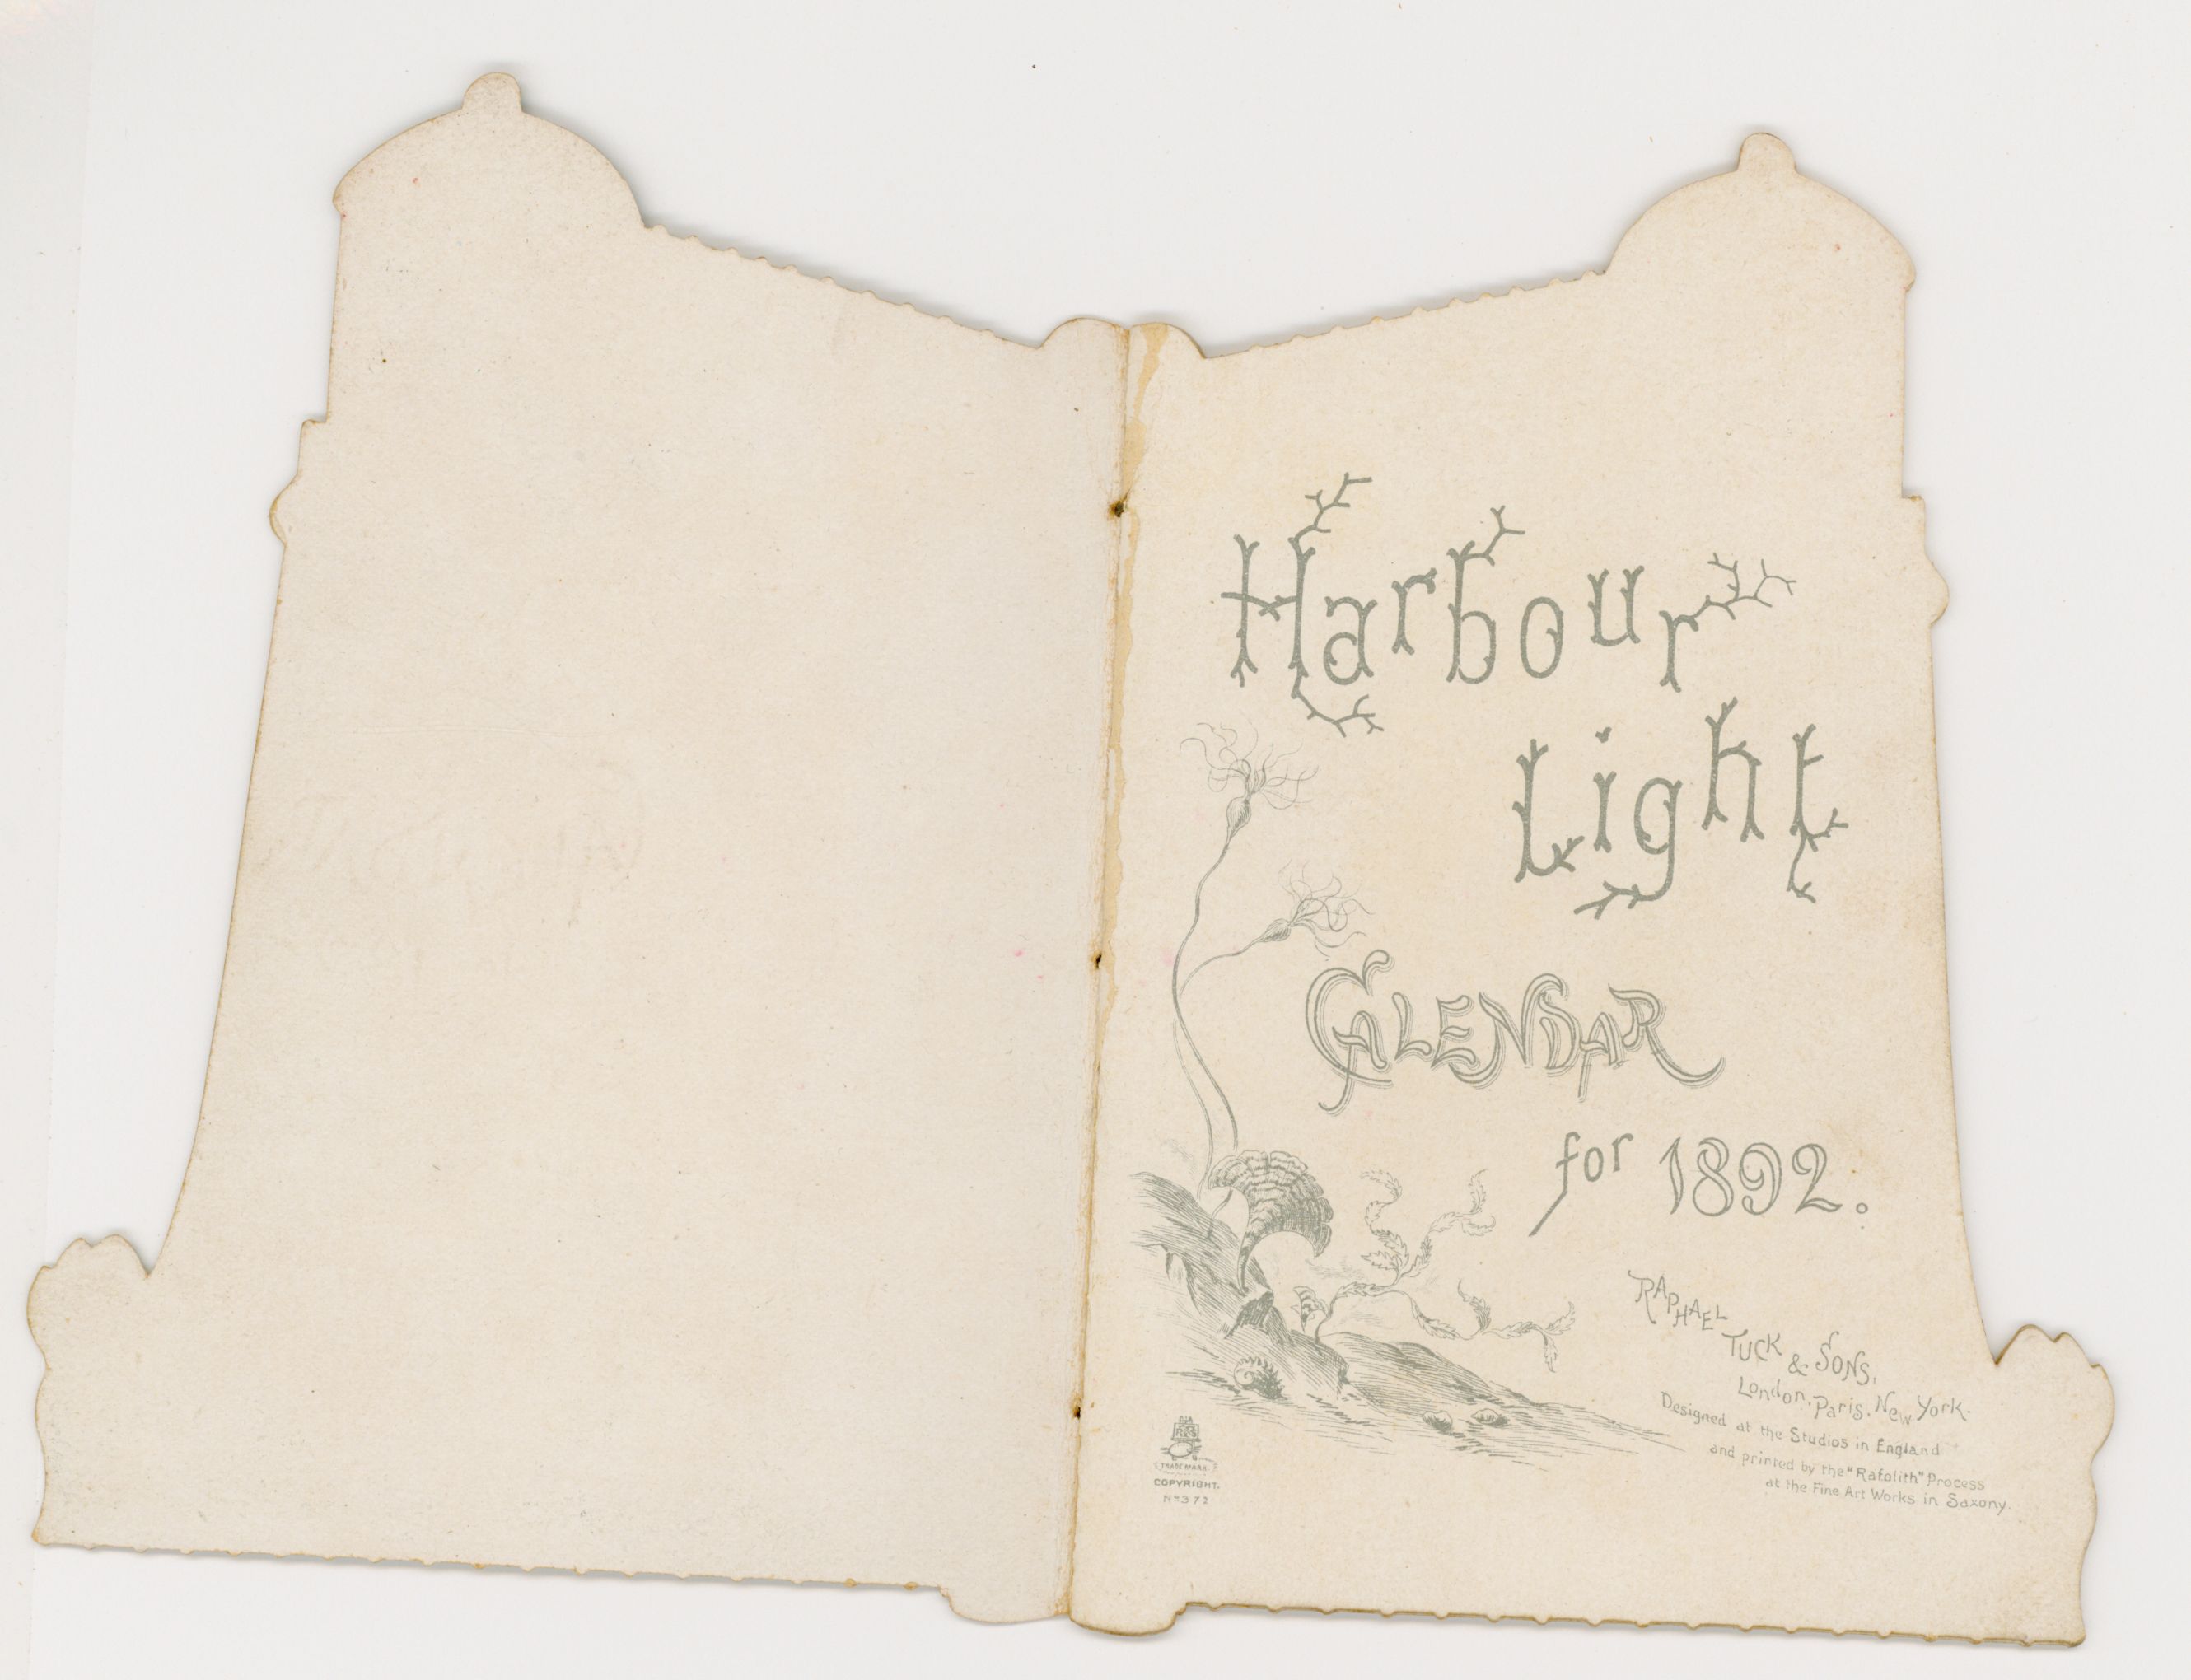 Harbour
Light
CALENDAR
for 1892.
RAPHAEL
TUCK & SONS,
London, Paris, New York.
Designed at the Studios in England
and printed by the "Rafolith" Process
at the Fine Art Works in Saxony.
TRADE MARK
COPYRIGHT.
Nº 372